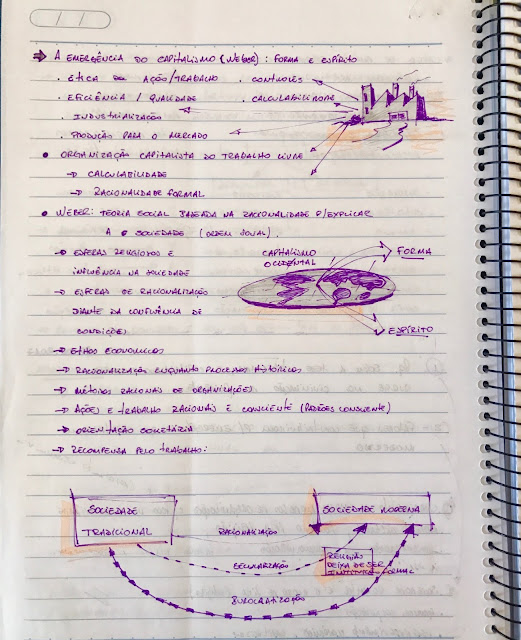 ⇒ A EMERGÊNCIA DO CAPITALISMO (WEBER): FORMA E ESPÍRITO
. ÉTICA DE AÇÃO/TRABALHO . CONTROLES
. EFICIÊNCIA / QUALIDADE . CALCULABILIDADE
. INDUSTRIALIZAÇÃO
. PRODUÇÃO PARA O MERCADO
• ORGANIZAÇÃO CAPITALISTA DO TRABALHO LIVRE
→ CALCULABILIDADE
→ RACIONALIDADE FORMAL
• WEBER: TEORIA SOCIAL BASEADA NA RACIONALIDADE P/EXPLICAR
A SOCIEDADE (ORDEM SOCIAL).
→ ESFERAS RELIGIOSOS E
INFLUÊNCIA NA SOCIEDADE
→ ESFERAS DE RACIONALIZAÇÃO
DIANTE DA CONFLUÊNCIA DE
CONDIÇÕES
CAPITALISMO
OCIDENTAL
FORMA
ESPÍRITO
→ ETHOS ECONOMICOS
→ RACIONALIZAÇÃO ENQUANTO PROCESSOS HISTÓRICOS
→ MÉTODOS RACIONAIS DE ORGANIZAÇÕES
→ AÇÕES E TRABALHO RACIONAIS E CONSCIENTE (PADRÕES CONSCIENTE)
→ ORIENTAÇÃO MONETÁRIA
→ RECOMPENSA PELO TRABALHO:
SOCIEDADE
TRADICIONAL
SOCIEDADE MODERNA
RACIONALIZAÇÃO
SECULARIZAÇÃO
RELIGIÃO
DEIXA DE SER
FORMAL
BUROCRATIZAÇÃO